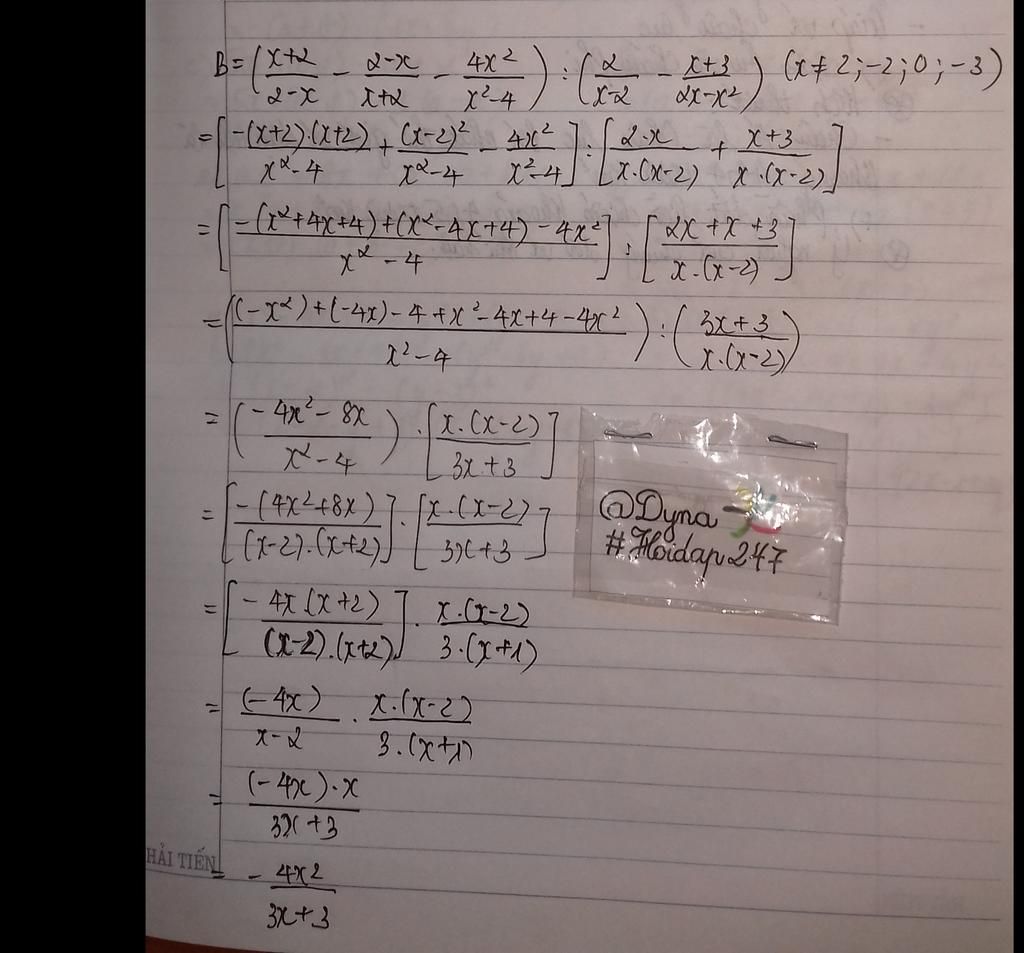 B = (x+2/2-x - 2-x/x+2 - 4x²/x²-4) : (2/x-2 - x+3/2x-x²) (x≠2;-2;0;-3)
= [-(x+2).(x+2)/x²-4 + (x-2)²/x²-4 - 4x²/x²-4] : [2.x/x.(x-2) + x+3/x.(x-2)]
= [-(x²+4x+4)+(x²-4x+4)-4x²/x²-4] : [2x+x+3/x.(x-2)]
= ((-x²)+(-4x)-4+x²-4x+4-4x²/x²-4) : (3x+3/x.(x-2))
= (-4x²-8x/x²-4) . [x.(x-2)/3x+3]
= [-(4x²+8x)/(x-2).(x+2)] . [x.(x-2)/3x+3]
= [-4x.(x+2)/(x-2).(x+2)] . x.(x-2)/3.(x+1)
= (-4x)/x-2 . x.(x-2)/3.(x+1)
= (-4x).x/3x+3
= -4x²/3x+3
@Dyna
#Hoidap247
HẢI TIẾN